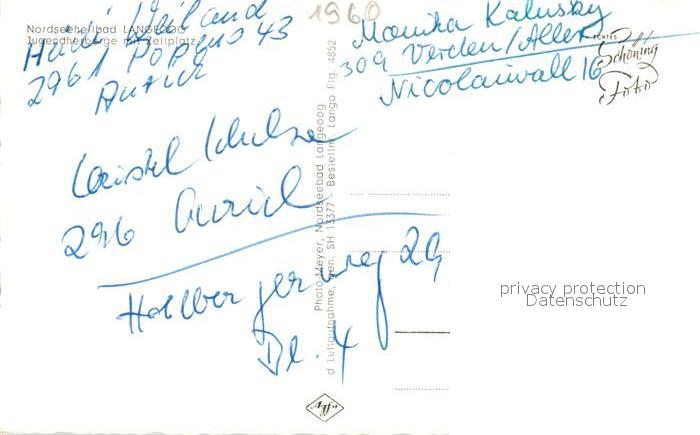 Nordseeheilbad LANGEOOG
Jugendherberge mit Zeltplatz
Heidi Weiland
2961 Popens 43
Aurich
1960
Monika Kalusky
309 Verden/Aller
Nicolaiwall 16
ECHTES
Schöning
Foto
Christel Schulze
296 Aurich
weg 29
Bl. 4
Photo Meyer, Nordseebad Langeoog
Luftaufnahme, SH 13377 Bestelln. Lango Flg. 4852
privacy protection
Datenschutz
Agfa